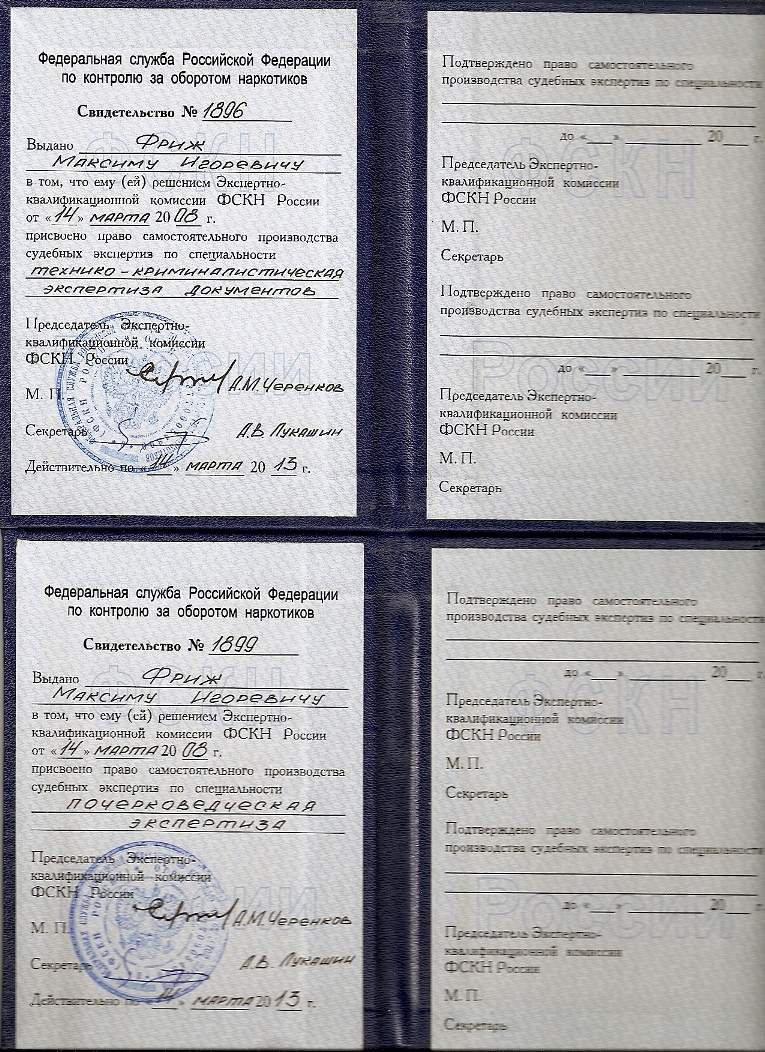 Федеральная служба Российской Федерации
по контролю за оборотом наркотиков
Свидетельство № 1896
Выдано Фриж
Максиму Игоревичу
в том, что ему (ей) решением Экспертно-
квалификационной комиссии ФСКН России
от «14» марта 2008 г.
присвоено право самостоятельного производства
судебных экспертиз по специальности
технико-криминалистическая
экспертиза документов
Председатель Экспертно-
квалификационной комиссии
ФСКН России
А.М. Черенков
М. П.
Секретарь А.В. Лукашин
Действительно по «14» марта 2013 г.
Подтверждено право самостоятельного
производства судебных экспертиз по специальности
до «__» ________ 20__ г.
Председатель Экспертно-
квалификационной комиссии
ФСКН России
М. П.
Секретарь
Подтверждено право самостоятельного
производства судебных экспертиз по специальности
до «__» ________ 20__ г.
Председатель Экспертно-
квалификационной комиссии
ФСКН России
М. П.
Секретарь
Федеральная служба Российской Федерации
по контролю за оборотом наркотиков
Свидетельство № 1899
Выдано Фриж
Максиму Игоревичу
в том, что ему (ей) решением Экспертно-
квалификационной комиссии ФСКН России
от «14» марта 2008 г.
присвоено право самостоятельного производства
судебных экспертиз по специальности
почерковедческая
экспертиза
Председатель Экспертно-
квалификационной комиссии
ФСКН России
А.М. Черенков
М. П.
Секретарь А.В. Лукашин
Действительно по «14» марта 2013 г.
Подтверждено право самостоятельного
производства судебных экспертиз по специальности
до «__» ________ 20__ г.
Председатель Экспертно-
квалификационной комиссии
ФСКН России
М. П.
Секретарь
Подтверждено право самостоятельного
производства судебных экспертиз по специальности
до «__» ________ 20__ г.
Председатель Экспертно-
квалификационной комиссии
ФСКН России
М. П.
Секретарь